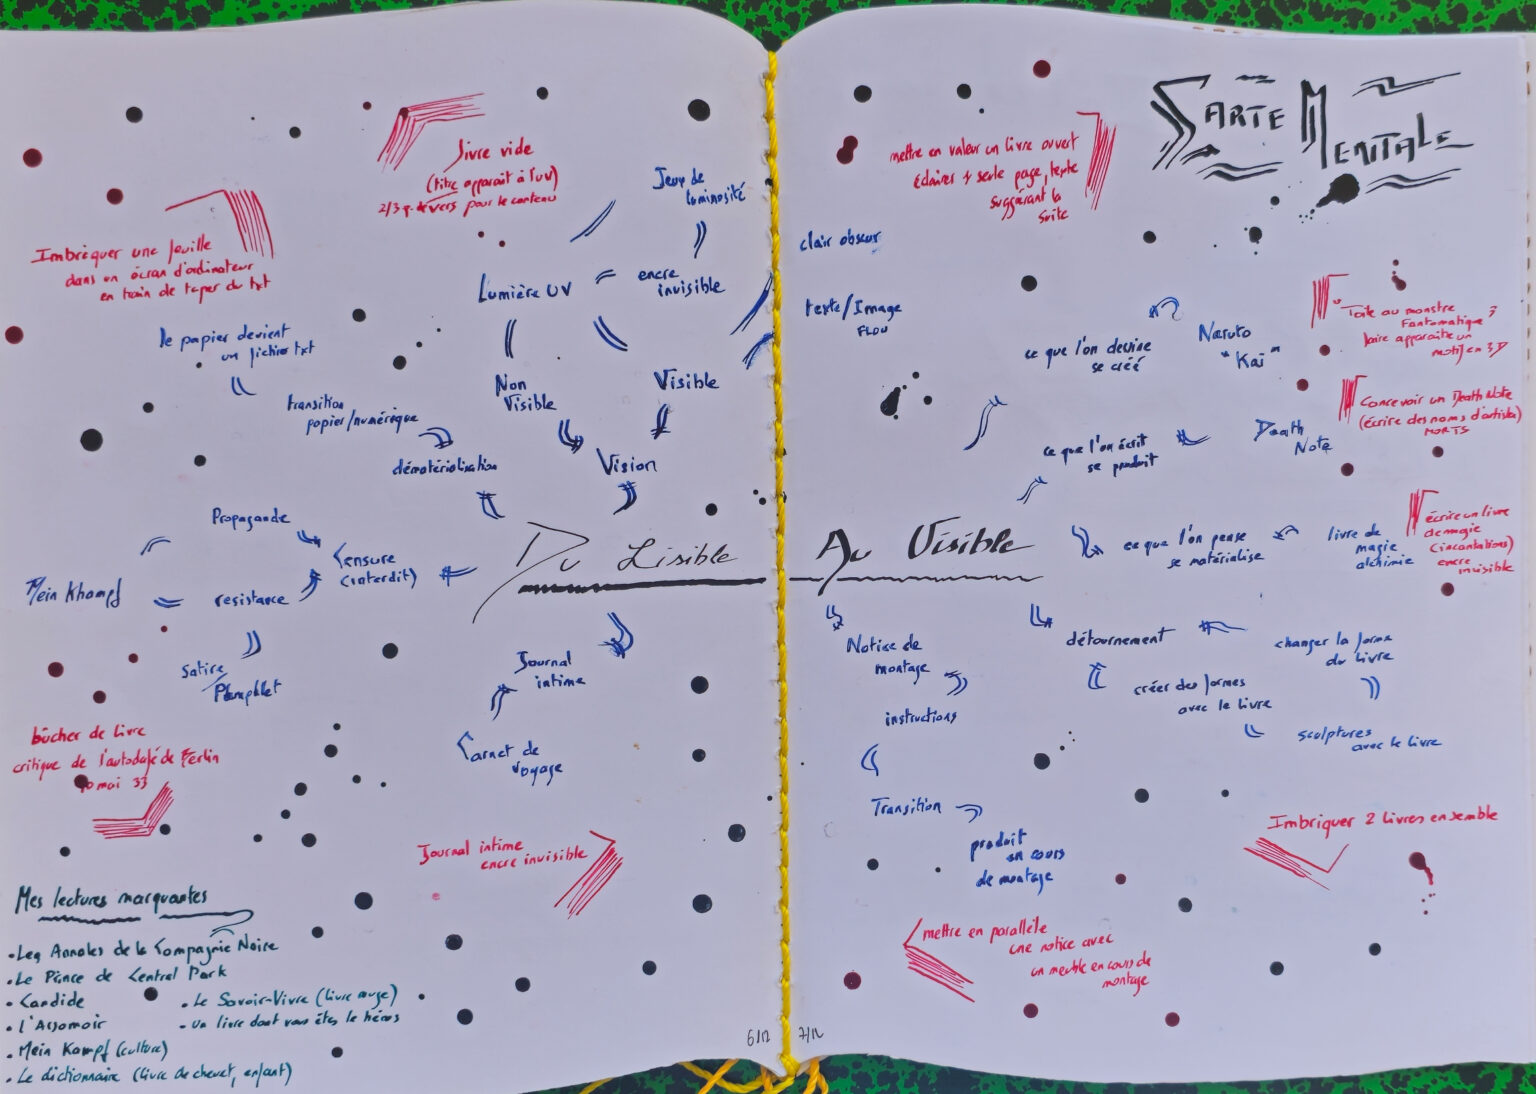 Carte Mentale
Livre vide
(titre apparait à l'uv)
2/3 p. de vers pour le contenu
Imbriquer une feuille
dans un écran d'ordinateur
en train de taper du txt
le papier devient
un fichier txt
transition
papier/numérique
dématérialisation
Jeux de
luminosité
Lumière UV
encre
invisible
Non
Visible
Visible
Vision
Propagande
Censure
(interdit)
Mein Khampf
resistance
Satire/
Pamphlet
bûcher de livre
critique de l'autodafé de Berlin
10 mai 33
Du Lisible Au Visible
Journal
intime
Carnet de
voyage
Journal intime
encre invisible
Mes lectures marquantes
• Les Annales de la Compagnie Noire
• Le Prince de Central Park
• Candide
• L'Assomoir
• Mein Kampf (culture)
• Le dictionnaire (livre de chevet, enfant)
• Le Savoir-Vivre (livre rouge)
• un livre dont vous êtes le héros
6/12
7/12
mettre en valeur un livre ouvert
éclairer 1 seule page, texte
suggérant la
suite
clair obscur
texte/Image
FLOU
ce que l'on dessine
se créé
Naruto
"Kaï"
Toile au monstre
Fantomatique ?
faire apparaitre un
motif en 3D
ce que l'on écrit
se produit
Death
Note
Concevoir un Death Note
(écrire des noms d'artistes)
MORTS
ce que l'on pense
se matérialise
livre de
magie
alchimie
écrire un livre
de magie
(incantations)
encre
invisible
Notice de
montage
instructions
Transition
produit
en cours
de montage
mettre en parallèle
une notice avec
un meuble en cours de
montage
détournement
changer la forme
du livre
créer des formes
avec le livre
sculptures
avec le livre
Imbriquer 2 livres ensemble